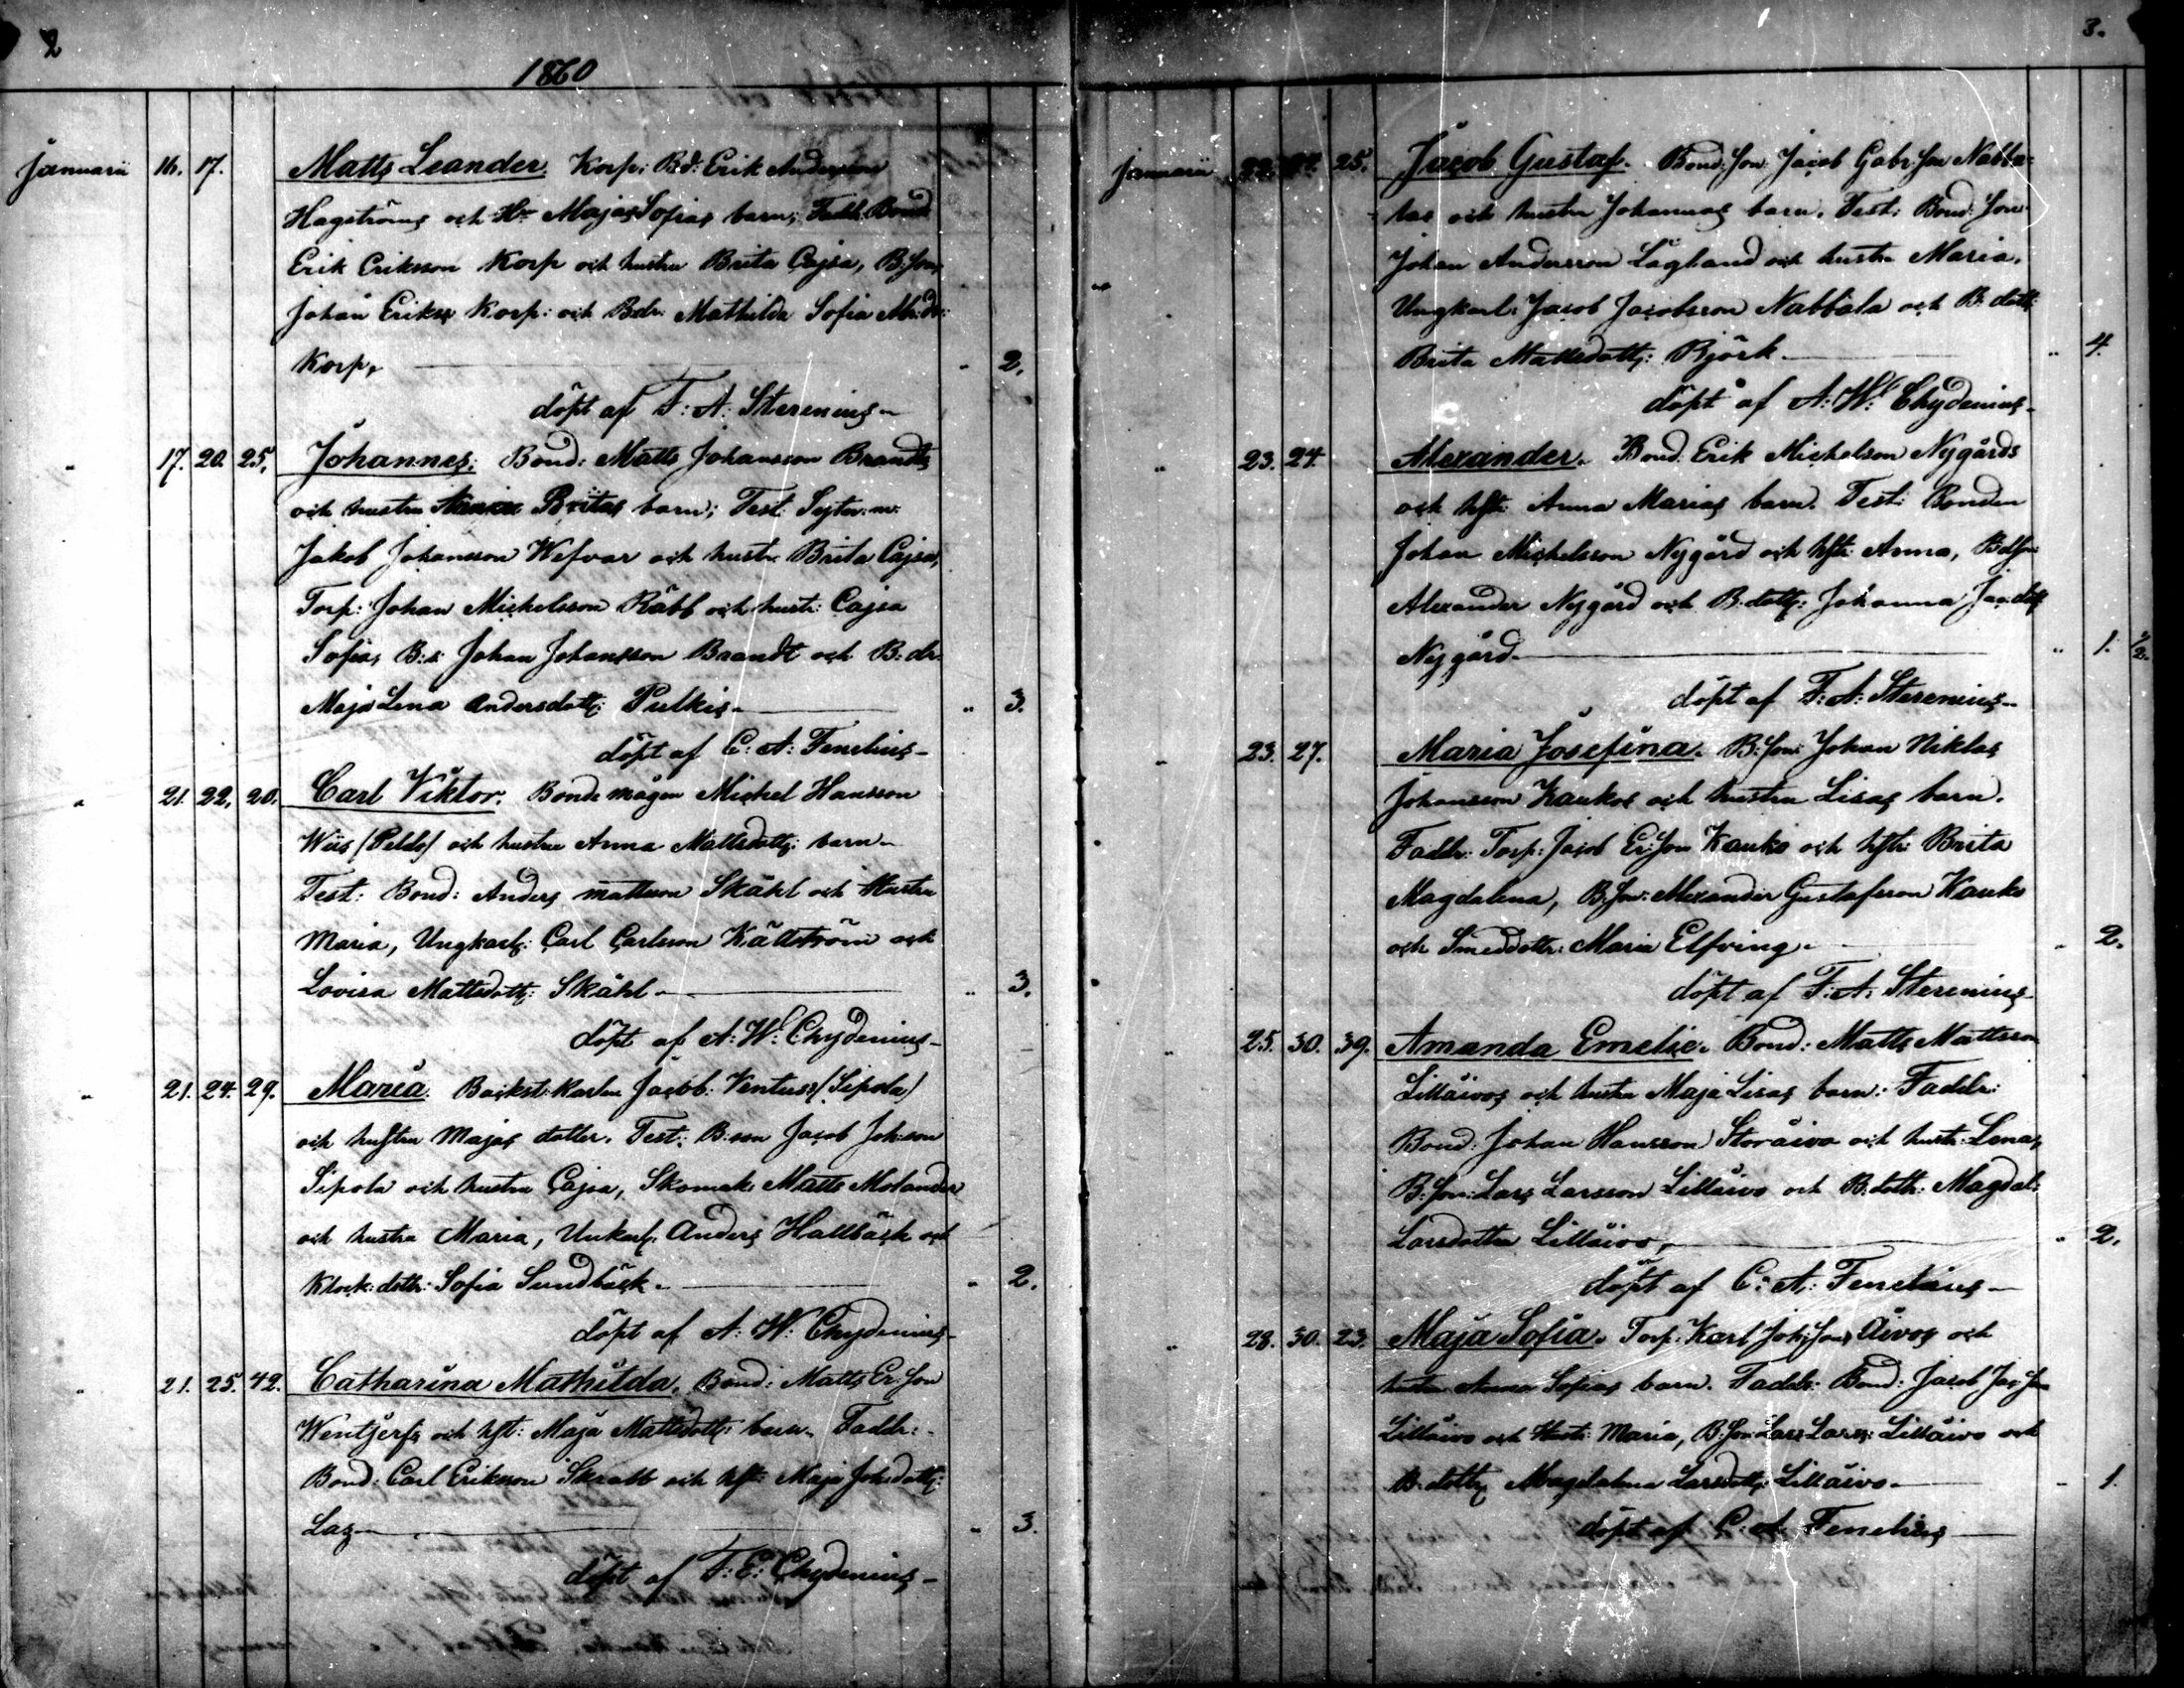 2
1860
Januarii 16. 17. Matts Leander. Korp: Bd: Erik Andersson
Hagströms och H:r Majas Sofias barn; Faddr. Bond
Erik Eriksson Korp och hustru Brita Cajsa, B:son
Johan Erikss Korp: och Bdr. Mathilda Sofia
Korp, - 2.
döpt af F: A: Sterenius
" 17. 20. 25. Johannes: Bond: Matts Johansson Brandts
och hustru Britas barn; Test.
Jakob Johansson Wefvar och hustr. Brita Cajsa,
Torp: Johan Michelsson Räbb och hustr: Cajsa
Sofia, B:s: Johan Johansson Brandt och B:dr.
Maja Lena Andersdottr: Pulkis " 3.
döpt af C: A: Fenelius
" 21. 22. 20. Carl Viktor. Bonde mågen Michel Hansson
Wiis (Peldo) och hustru Anna Mattsdottr: barn
Test: Bond: Anders Mattsson Skåhl och Hustru
Maria, Ungkarl: Carl Carlsson Källström och
Lovisa Mattsdottr: Skåhl " 3.
döpt af A: W: Chydenius
" 21. 24. 29. Maria. Backst: karlen Jacob: Ventus (Sipola)
och hustru Majas dotter. Test: B:son Jacob Joh:son
Sipola och hustru Cajsa, Skomak. Matts Molander
och hustru Maria, Unkarl. Anders Hallbäck och
Klock: dottr: Sofia Sundbäck " 2.
döpt af A: W: Chydenius
" 21. 25. 42. Catharina Mathilda. Bond: Matts Er:son
Wentjerfs och hst: Maja Mattsdottr: barn. Faddr:
Bond: Carl Eriksson Skrabb och hst: Maja Johsdottr:
Laz " 3.
döpt af F: E: Chydenius
3.
Januarii 22. 25. Jacob Gustaf. Bond:son: Jacob Gabr:son Nabba-
las och hustru Johannas barn. Test: Bond:son
Johan Andersson Lågland och hustru Maria,
Ungkarl: Jacob Jacobsson Nabbala och B: dottr:
Brita Mattsdottr: Björk " 4.
döpt af A: W: Chydenius
" 23. 24. Alexander. Bond. Erik Michelson Nygårds
och hst: Anna Marias barn. Test: Bonden
Johan Michelsson Nygård och hst: Anna, Bdson
Alexander Nygård och B:dottr: Johanna Jac:dott
Nygård " 1. 1/2.
döpt af F: A: Sterenius
" 23. 27. Maria Josefina. B:son: Johan Niklas
Johansson Kaukos och hustru Lisas barn.
Faddr: Torp: Jacob Er:son Kauko och hst: Brita
Magdalena, B:son: Alexander Gustafsson Kauko
och Smeddottr: Maria Elfving " 2.
döpt af F: A: Sterenius
" 25. 30. 39. Amanda Emelie. Bond: Matts Mattsson
Lillåivos och hustru Maja Lisas barn: Faddr:
Bond: Johan Hansson Storåivo och hustr: Lena,
B:son: Lars Larsson Lillåivo och B:dottr: Magdal:
Larsdotter Lillåivo, " 2.
döpt af C: A: Fenelius
" 28. 30. 23. Maja Sofia. Torp: Karl Joh:sons Åivos och
hustru Anna Sofias barn. Faddr: Bond: Jacob Jac:son
Lillåivo och Hustr: Maria, B:son Lars Larss: Lillåivo och
B:dottr: Magdalena Larsdottr: Lillåivo " 1.
döpt af C: A: Fenelius